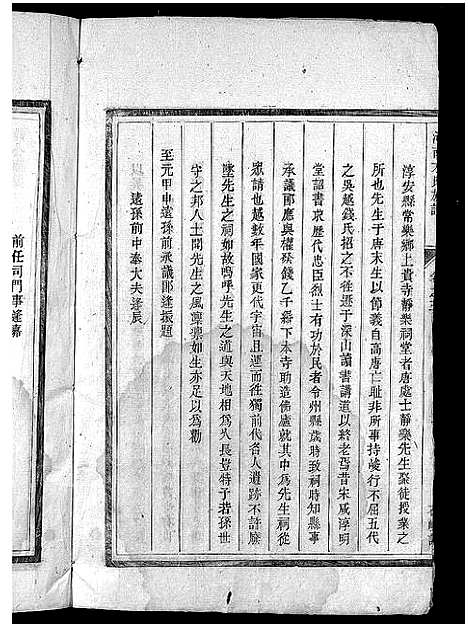 淳安縣常樂鄉上貴寺靜樂祠堂者唐處士靜樂先生聚徒授業之
所也先生于唐末生以節義自高唐亡耻非所事持峻行不屈五代
之吳越錢氏招之不徃遯于深山讀書講道以終老焉昔宋咸淳明
堂詔書求歷代忠臣烈士有功於民者令州縣歲時致祠時知縣事
承議郎應與權撥錢乙千緡下本寺助造佛廬就其中為先生祠從
眾請也越數年國家更代宇宙且運而徃獨前代各人遺跡不許廢
墜先生之祠如故嗚呼先生之道與天地相為久長豈特子若孫世
守之邦人士聞先生之風凜凜如生亦足以為勸
至元甲申遠孫前承議郎逢振題
遠孫前中奉大夫逢辰
前任司門事逢嘉